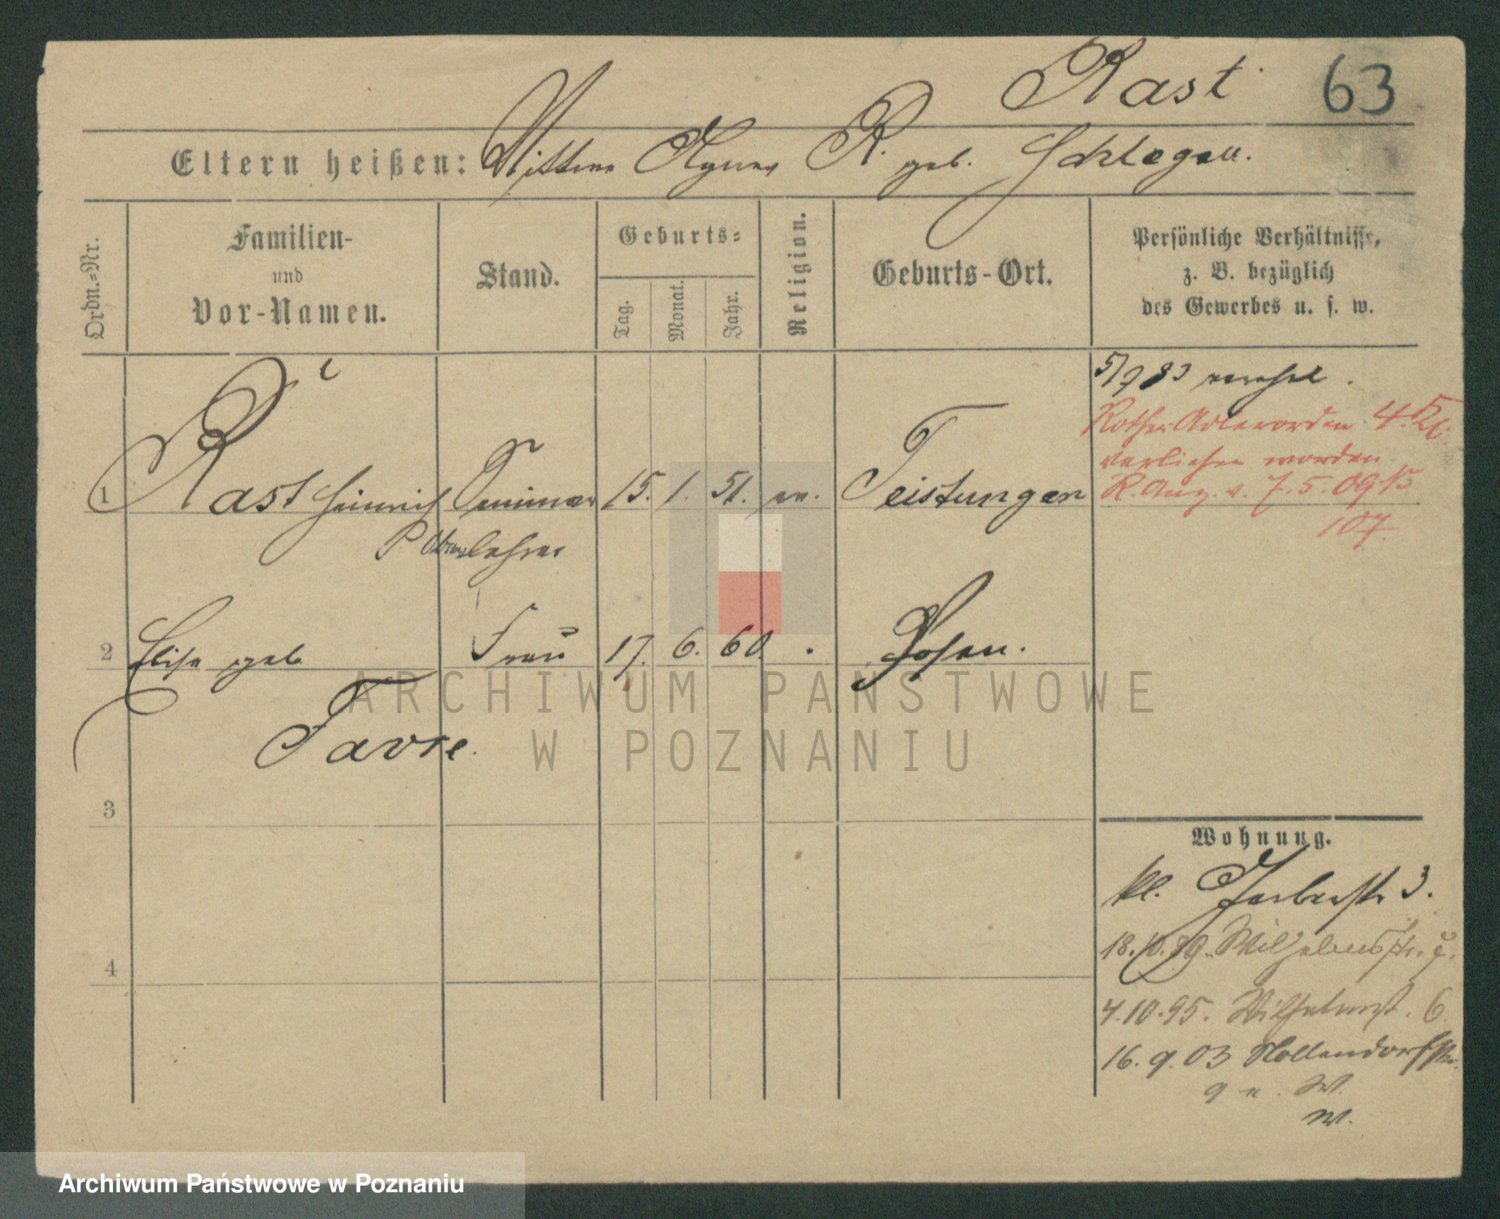 Rast 63
Eltern heißen: Wittwe Agnes R. geb. Schlegel.
Ordn.-Nr.
Familien-
und
Vor-Namen.
Stand.
Geburts-
Tag.
Monat.
Jahr.
Religion.
Geburts-Ort.
Persönliche Verhältnisse,
z. B. bezüglich
des Gewerbes u. s. w.
5/9 83 verehel.
Rother Adlerorden 4. Kl.
verliehen worden
R. Anz. v. 7.5.09 No
107.
1 Rast Heinrich Seminar 15. 1. 51. ev. Teistungen
P Oberlehrer
2 Elise geb Frau 17. 6. 60. Posen.
Favre.
3
4
Wohnung.
kl. Gerberstr 3.
18.10.89. Wilhelmstr.
4.10.95. Wilhelmst. 6
16.9.03 Nollendorfstr.
9 W.
W.
ARCHIWUM PAŃSTWOWE
W POZNANIU
Archiwum Państwowe w Poznaniu